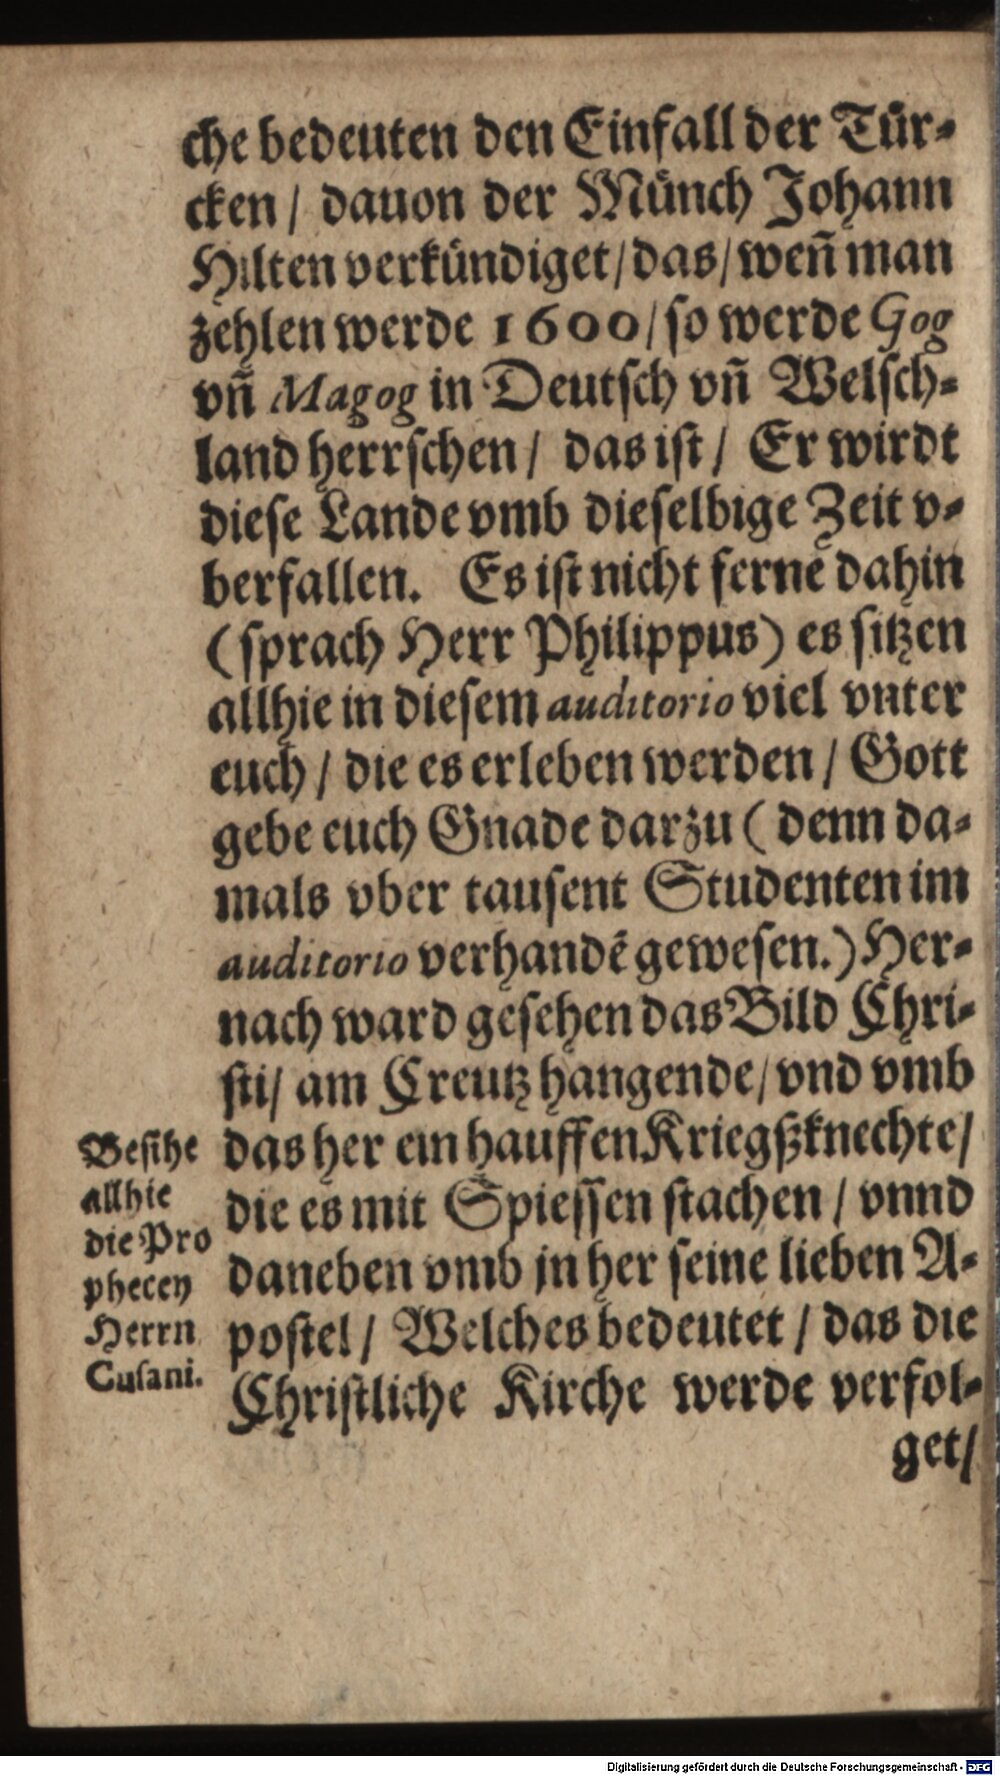 che bedeuten den Einfall der Tür-
cken / dauon der Münch Johann
Hilten verkündiget / das / weñ man
zehlen werde 1600 / so werde Gog
vñ Magog in Deutsch vñ Welsch-
land herrschen / das ist / Er wirdt
diese Lande vmb dieselbige Zeit v-
berfallen. Es ist nicht ferne dahin
(sprach Herr Philippus) es sitzen
allhie in diesem auditorio viel vnter
euch / die es erleben werden / Gott
gebe euch Gnade darzu ( denn da-
mals vber tausent Studenten im
auditorio verhandẽ gewesen.) Her-
nach ward gesehen das Bild Chri-
sti / am Creutz hangende / vnd vmb
das her ein hauffen Kriegßknechte /
die es mit Spiessen stachen / vnnd
daneben vmb jn her seine lieben A-
postel / Welches bedeutet / das die
Christliche Kirche werde verfol-
get /
Besihe
allhie
die Pro
phecey
Herrn
Cusani.
Digitalisierung gefördert durch die Deutsche Forschungsgemeinschaft - DFG